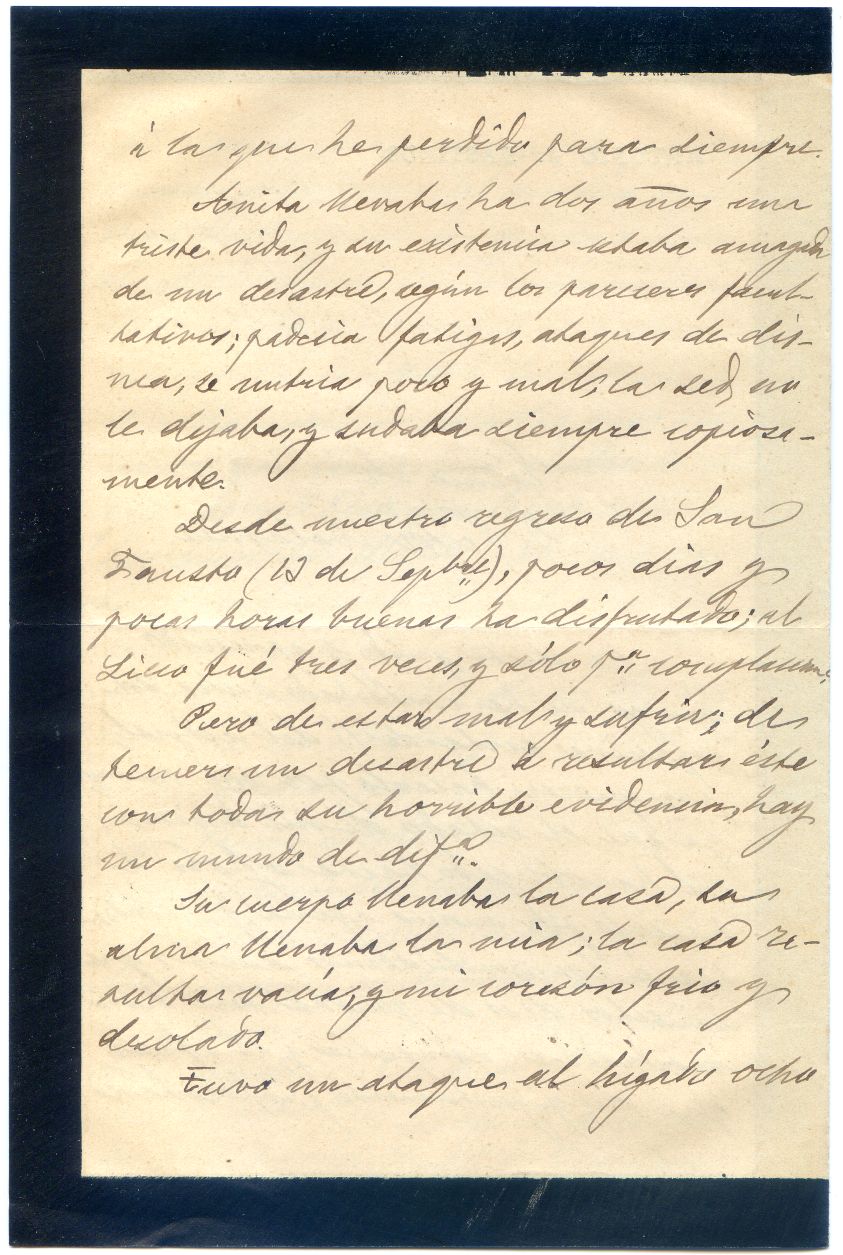 á la que he perdido para siempre.
Anita llevaba ha dos años una
triste vida, y su existencia estaba amagada
de un desastre, según los pareceres facul-
tativos; padecía fatigas, ataques de dis-
nea, se nutria poco y mal; la sed no
le dejaba, y sudaba siempre copiosa-
mente.
Desde nuestro regreso de San
Fausto (13 de Sepbre), pocos dias y
pocas horas buenas ha disfrutado; al
Liceo fué tres veces, y sólo pr
Pero de estar mal y sufrir; de
temer un desastre á resultar éste
con toda su horrible evidencia, hay
un mundo de difa.
Su cuerpo llenaba la casa, su
alma llenaba la mia; la casa re-
sulta vacía, y mi corazón frio y
desolado.
Tuvo un ataque al hígado ocho